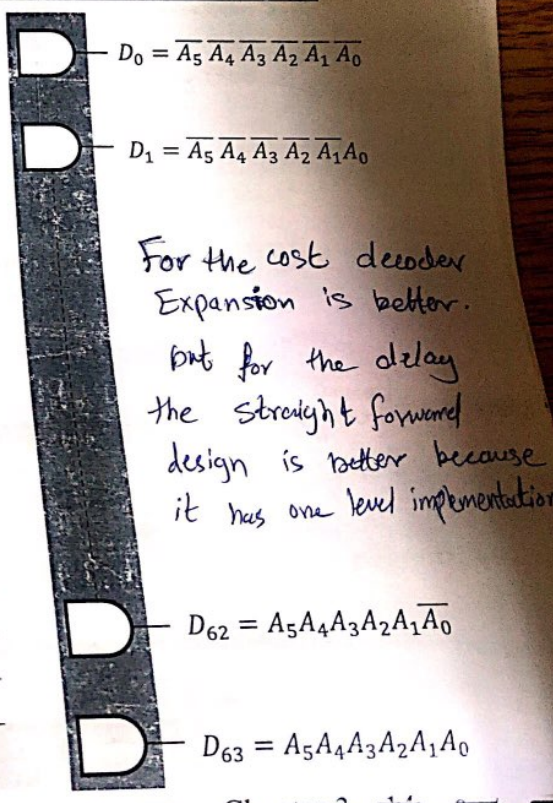 D₀ = A̅₅ A̅₄ A̅₃ A̅₂ A̅₁ A̅₀
D₁ = A̅₅ A̅₄ A̅₃ A̅₂ A̅₁A₀
For the cost decoder
Expansion is better.
but for the delay
the straight forward
design is better because
it has one level implementation
D₆₂ = A₅A₄A₃A₂A₁A̅₀
D₆₃ = A₅A₄A₃A₂A₁A₀